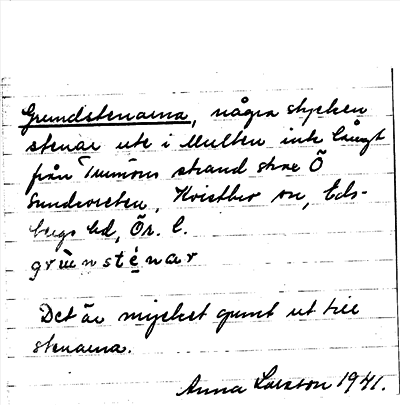 Grundstenarna, några stycken
stenar ute i Multen inte långt
från Tunnöns strand strax Ö
Sundsvreten, Kvistbro sn, Eds-
bergs hd, Ör. l.
grùnsténar
Det är mycket grunt ut till
stenarna.
Anna Larsson 1941.